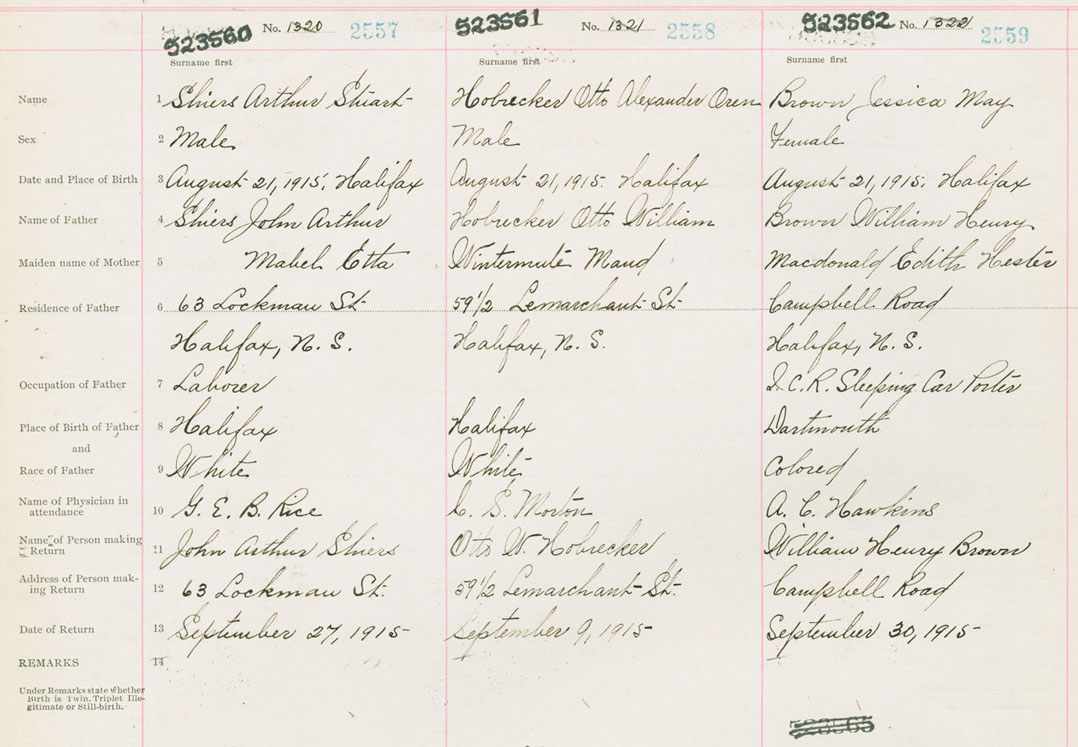 523560 No. 1320 2557
523561 No. 1321 2558
523562 No. 1322 2559
Surname first Surname first Surname first
Name 1 Shiers Arthur Stuart Hobrecker Otto Alexander Oren Brown Jessica May
Sex 2 Male Male Female
Date and Place of Birth 3 August 21, 1915, Halifax August 21, 1915. Halifax August 21, 1915, Halifax
Name of Father 4 Shiers John Arthur Hobrecker Otto William Brown William Henry
Maiden name of Mother 5 Mabel Etta Wintermute Maud Macdonald Edith Hester
Residence of Father 6 63 Lockman St. 59 1/2 Lemarchant St. Campbell Road
Halifax, N. S. Halifax, N. S. Halifax, N. S.
Occupation of Father 7 Laborer I.C.R. Sleeping Car Porter
Place of Birth of Father 8 Halifax Halifax Dartmouth
and
Race of Father 9 White White Colored
Name of Physician in
attendance 10 G. E. B. Rice C. S. Morton A. C. Hawkins
Name of Person making
Return 11 John Arthur Shiers Otto W. Hobrecker William Henry Brown
Address of Person mak-
ing Return 12 63 Lockman St. 59 1/2 Lemarchant St. Campbell Road
Date of Return 13 September 27, 1915 September 9, 1915 September 30, 1915
REMARKS 14
Under Remarks state whether
Birth is Twin, Triplet Ille-
gitimate or Still-birth.